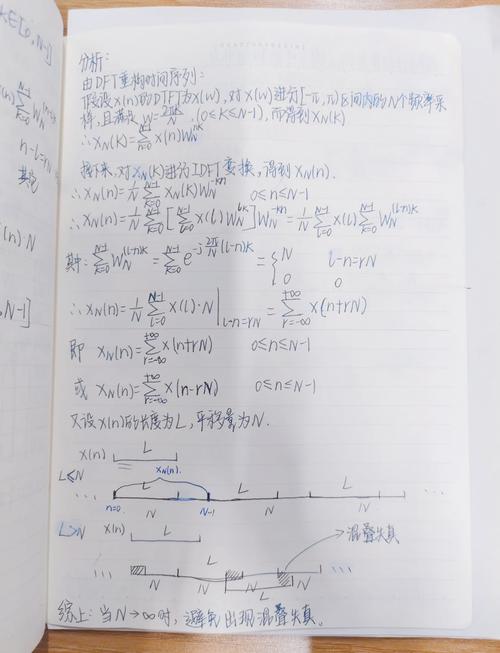 k∈[0, N-1]
∑_{k=0}^{N-1} W_N
n-l=rN
其他
(n)·N
N-1]
分析:
由DFT重构时间序列:
假设x(n)的DTFT为X(w), 对X(w)进行[-π,π)区间内的N个频率采
样, 且满足 W=2πk/N, (0≤k≤N-1), 而得到X_N(k)
∴X_N(k)=∑_{n=0}^{N-1} x(n)W_N^{nk}
接下来, 对X_N(k)进行IDFT变换, 得到X_N(n).
∴X_N(n)=1/N ∑_{k=0}^{N-1} X_N(k)W_N^{-kn} 0≤n≤N-1
∴X_N(n)=1/N ∑_{k=0}^{N-1} [∑_{l=0}^{N-1} x(l)W_N^{lk}]W_N^{-kn}=1/N ∑_{l=0}^{N-1} x(l) ∑_{k=0}^{N-1} W_N^{(l-n)k}
其中: ∑_{k=0}^{N-1} W_N^{(l-n)k}=∑_{k=0}^{N-1} e^{-j 2π/N (l-n)k}={N l-n=rN
0 0
∴X_N(n)=1/N ∑_{l=0}^{N-1} x(l)·N |_{l-n=rN} = ∑_{r=-∞}^{+∞} x(n+rN)
即 X_N(n)=∑_{r=-∞}^{+∞} x(n+rN) 0≤n≤N-1
或 X_N(n)=∑_{r=-∞}^{+∞} x(n-rN) 0≤n≤N-1
又设x(n)的长度为L, 平移量为N.
x(n) L
L≤N L X_N(n) L L
··· n=0 N N-1 N N ···
L>N x(n) L 混叠失真
L
··· N N N N ···
L
综上: 当N→∞时, 避免出现混叠失真。